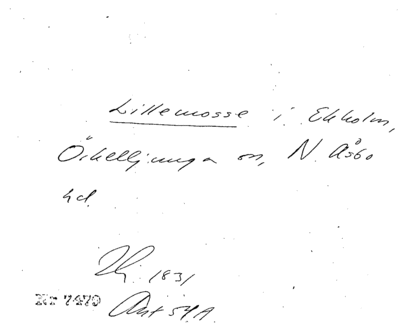 Lillemosse i Ekholm,
Örkelljunga sn, N. Åsbo
hd.
1831
Nr 7470 Akt 54A